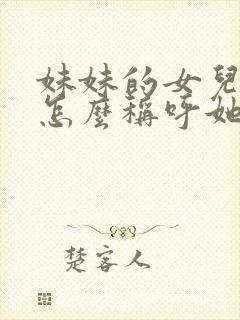 妹妹的女兒
怎麼稱呼她
楚客人